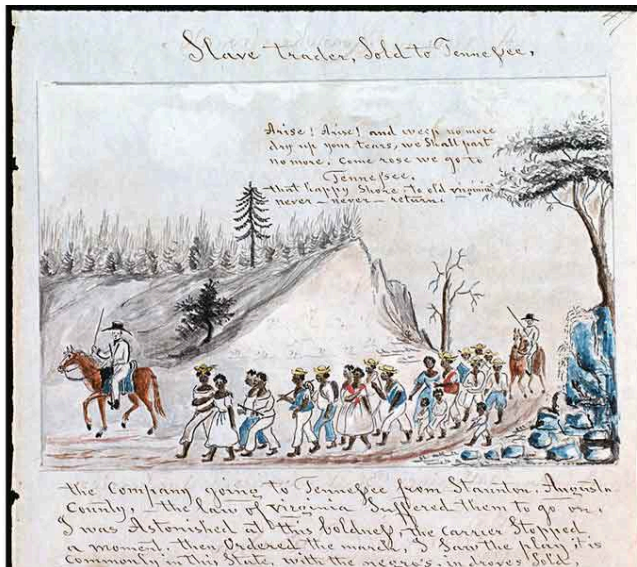 Slave trader, Sold to Tennessee,
Arise! Arise! and weep no more
dry up your tears, we Shall part
no more, Come rose we go to
Tennessee,
that happy Shore, to old virginia
never - never - return.
the Company going to Tennessee from Staunton, Augusta
County, - the law of virginia Suffered them to go on,
I was Astonished at this boldness, the carrier Stopped
a moment, then Ordered the march, I Saw the play it is
Commonly in this State, with the negro's in droves Sold,